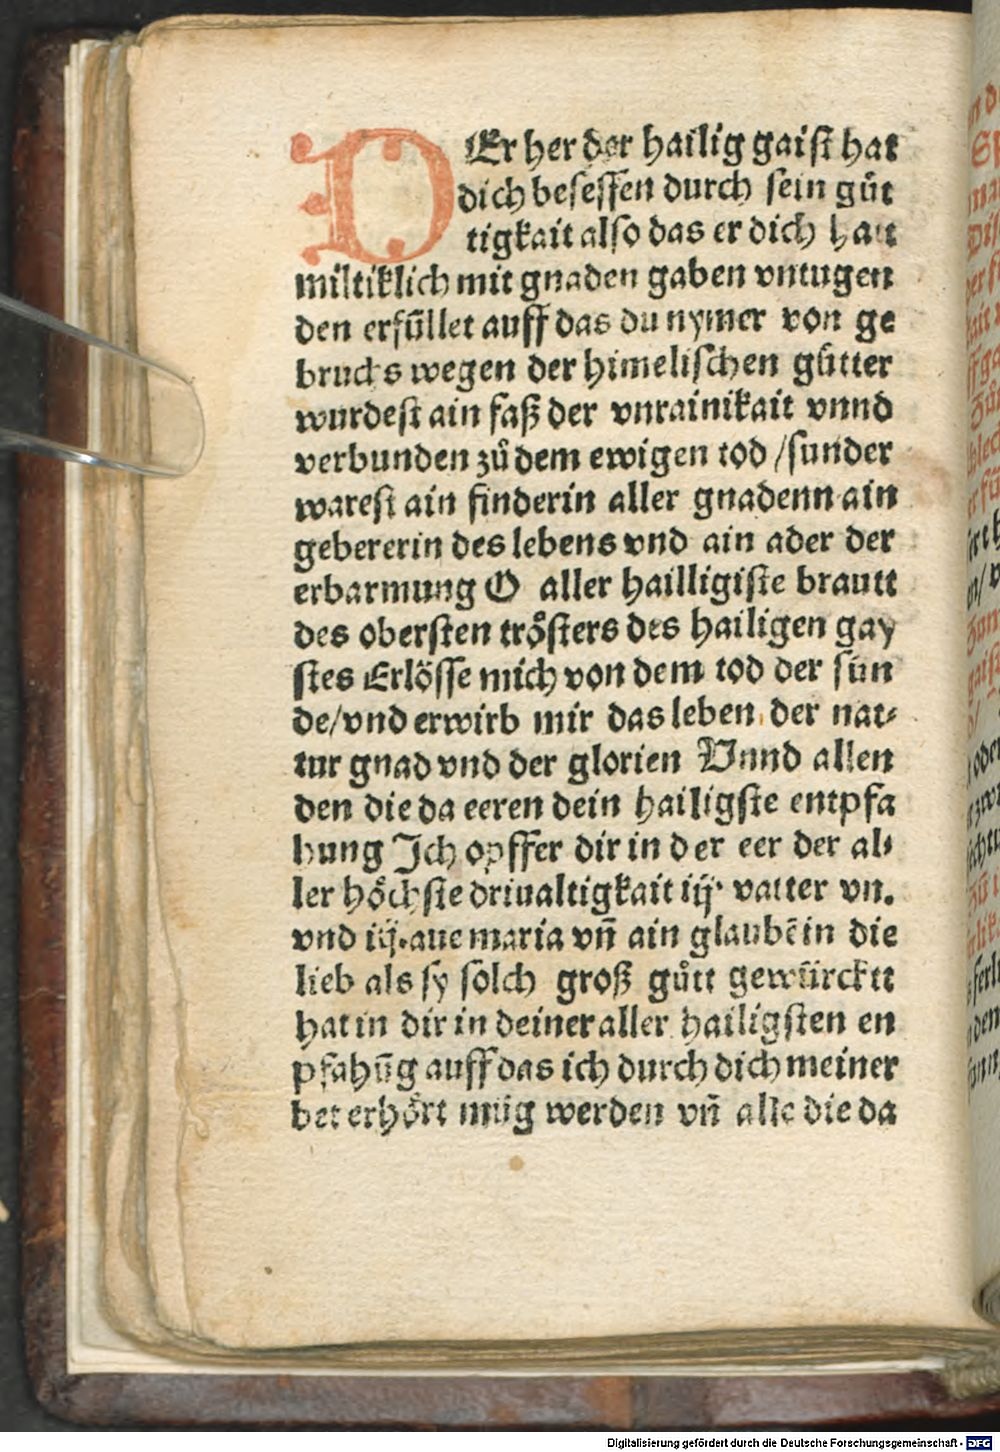 DEr her der hailig gaiſt hat
dich beſeſſen durch ſein guͤt
tigkait alſo das er dich hatt
miltiklich mit gnaden gaben vntugen
den erfüllet auff das du nymer von ge
bruchs wegen der himeliſchen guͤtter
wurdeſt ain faß der vnrainikait vnnd
verbunden zuͦ dem ewigen tod /ſunder
wareſt ain finderin aller gnadenn ain
gebererin des lebens vnd ain ader der
erbarmung O aller hailligiſte brautt
des oberſten troͤſters des hailigen gay
ſtes Erlöſſe mich von dem tod der ſün
de/vnd erwirb mir das leben der nat⸗
tur gnad vnd der glorien Vnnd allen
den die da eeren dein hailigſte entpfa
hung Jch opffer dir in der eer der al⸗
ler hoͤchſte driualtigkait iij· vatter vn.
vnd iij.aue maria vñ ain glaubē in die
lieb als ſy ſolch groß guͤtt gewürcktt
hat in dir in deiner aller hailigſten en
pfahūg auff das ich durch dich meiner
bet erhoͤrt müg werden vñ alle die da
Digitalisierung gefördert durch die Deutsche Forschungsgemeinschaft - DFG